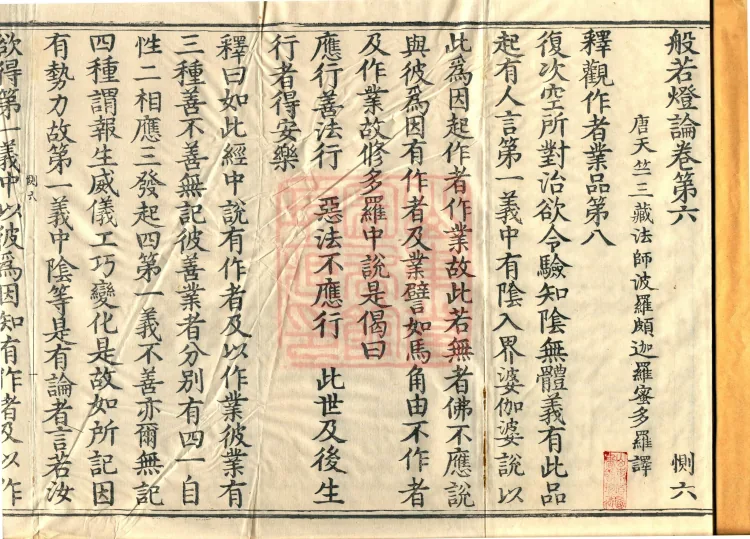 般若燈論卷第六 惻六
唐天竺三藏法師波羅頗迦羅蜜多羅譯
釋觀作者業品第八
復次空所對治欲令驗知陰無體義有此品
起有人言第一義中有陰入界婆伽婆說以
此為因起作者作業故此若無者佛不應說
與彼為因有作者及業譬如馬角由不作者
及作業故修多羅中說是偈曰
應行善法行 惡法不應行 此世及後生
行者得安樂
釋曰如此經中說有作者及以作業彼業有
三種善不善無記彼善業者分別有四一自
性二相應三發起四第一義不善亦爾無記
四種謂報生威儀工巧變化是故如所記因
有勢力故第一義中陰等是有論者言若汝
惻六
欲得第一義中以彼為因知有作者及以作